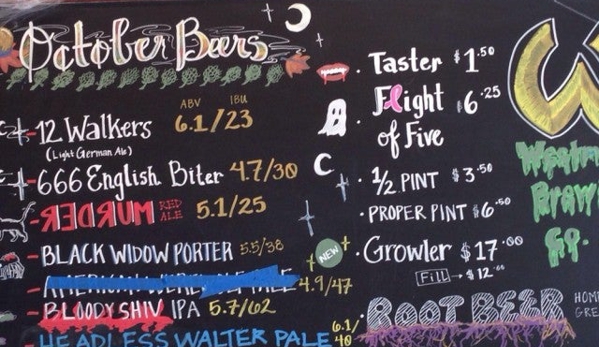 October Beers
ABV IBU
12 Walkers 6.1/23
(Light German Ale)
666 English Biter 4.7/30
REDRUM RED ALE 5.1/25
BLACK WIDOW PORTER 5.5/38
AMERICAN WERE ALE 4.9/47
BLOODY SHIV IPA 5.7/62
HEADLESS WALTER PALE 6.1/40
Taster $1.50
Flight $6.25
of Five
1/2 PINT $3.50
PROPER PINT $6.50
NEW Growler $17.00
Fill → $12.00
ROOT BEER HOM
GRE
W
Brew
Co.